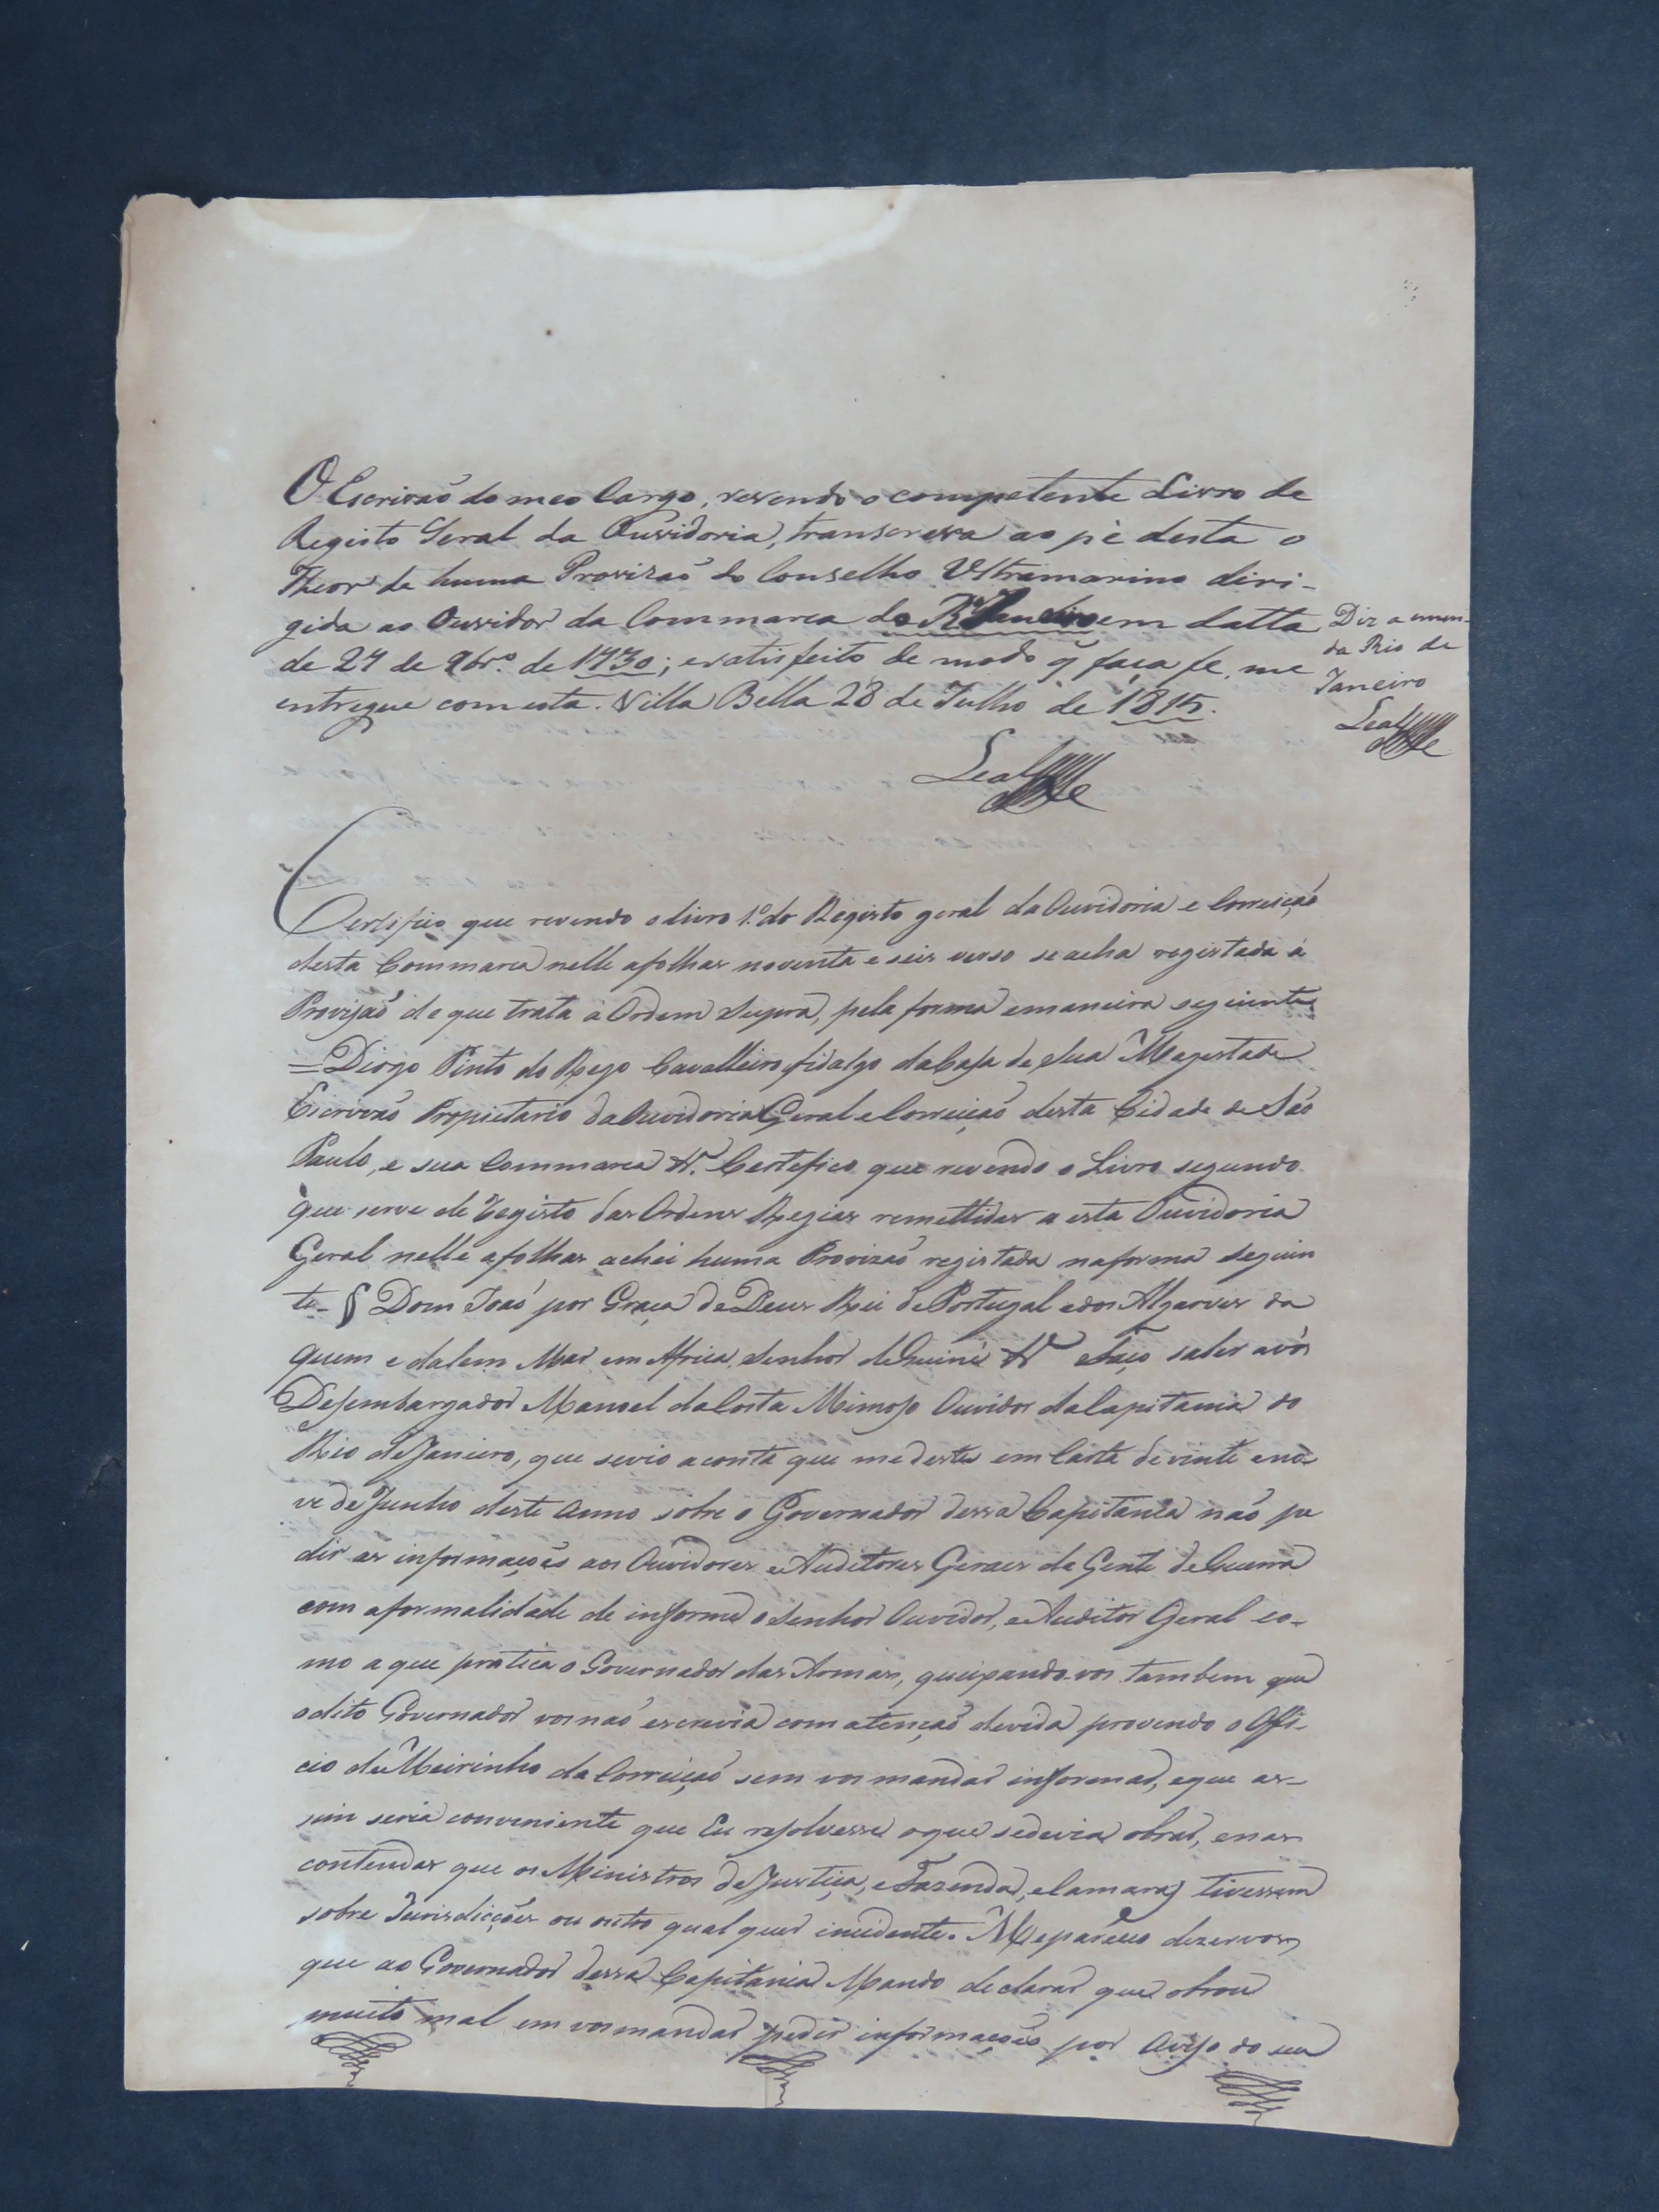 O Escrivaõ do meo Cargo, revendo o competente Livro de
Registo Geral da Ouvidoria, transcreva ao pè desta o
Theor de huma Provizaõ do Conselho Ultramarino diri-
gida ao Ouvidor da Commarca do R.º Janeiro em datta
de 24 de 9br.º de 1730; e satisfeito de modo q̃ faça fe, me
entregue com esta. Villa Bella 28 de Julho de 1815.
Leal
Diz a emen-
da Rio de
Janeiro
Leal
Certifico que revendo o livro 1.º do Registo geral da Ouvidoria e Correiçaõ
desta Commarca nelle afolhas noventa e seis verso se acha registada a
Provizaõ de que trata a Ordem Supra, pela forma emaneira seguinte
= Diogo Pinto do Rego Cavalleiro fidalgo da Casa de Sua Magestade
Escrivaõ Propietario da Ouvidoria Geral e Correiçaõ desta Cidade de Saõ
Paulo, e sua Commarca &.ª Certefico que revendo o Livro segundo
que serve de Registo das Ordens Regias remettidas a esta Ouvidoria
Geral nelle afolhas achei huma Provizaõ registada naforma seguin
te - § Dom Joaõ por Graça de Deus Rei de Portugal edos Algarves da
quem e dalem Mar em Africa Senhor de Guiné &ª Faço saber avós
Desembargador Manoel da Costa Mimoso Ouvidor da Capitania do
Rio de Janeiro, que sevio aconta que me destes em Carta de vinte eno
ve de Junho deste Anno sobre o Governador dessa Capitania naõ pe
dir as informaçoẽs aos Ouvidores e Auditores Geraes da Gente de Guerra
com aformalidade de informe o Senhor Ouvidor, e Auditor Geral co-
mo a que pratica o Governador das Armas, queixando-vos tambem que
odito Governador vos naõ escrevia com atençaõ devida provendo o Offi-
cio de Meirinho da Correiçaõ sem vos mandar informar, eque as-
sim seria conveniente que Eu resolvesse oque sedevia obrar, enas
contendas que os Ministros de Justiça, e Fazenda, e Camaras tivessem
sobre Jurisdicçoẽs ou outro qual quer incidente. Mepareceo dizervos
que ao Governador dessa Capitania Mando declarar que obrou
muito mal em vos mandar pedir informaçoẽs por Aviso do seu